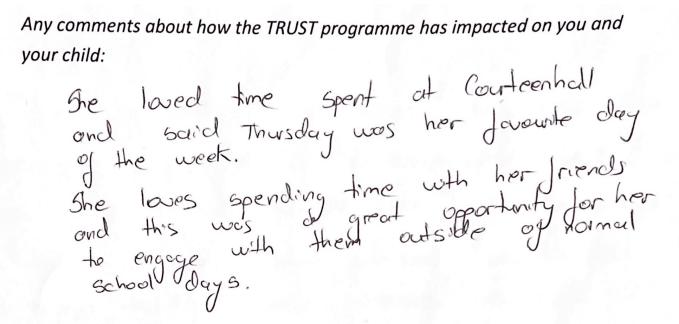 Any comments about how the TRUST programme has impacted on you and
your child:
She loved time spent at Courteenhall
and said Thursday was her favourite day
of the week.
She loves spending time with her friends
and this was a great opportunity for her
to engage with them outside of normal
school days.